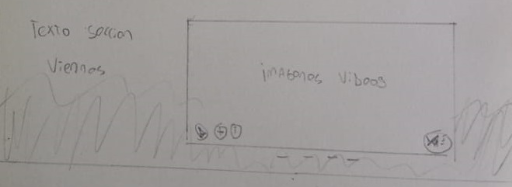 Texto seccion
Viernes
imagenes videos